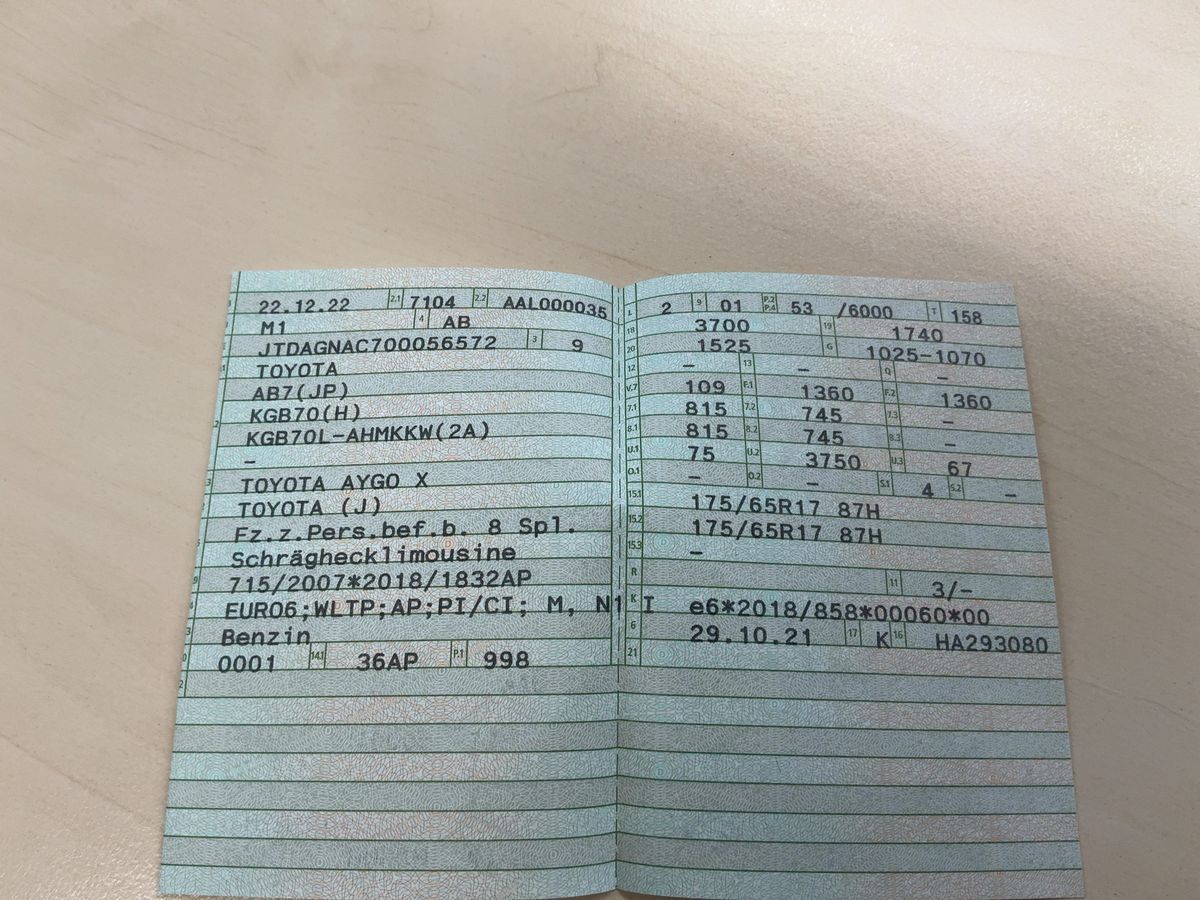 22.12.22 2.1 7104 2.2 AAL000035
M1 4 AB
JTDAGNAC700056572 3 9
TOYOTA
AB7(JP)
KGB70(H)
KGB70L-AHMKKW(2A)
–
TOYOTA AYGO X
TOYOTA (J)
Fz.z.Pers.bef.b. 8 Spl.
Schräghecklimousine
715/2007*2018/1832AP
EURO6;WLTP;AP;PI/CI; M, N1 I
Benzin
0001 14.1 36AP P.1 998
L 2 9 01 P.2 P.4 53 /6000 T 158
18 3700 19 1740
20 1525 G 1025-1070
12 – 13 – Q –
V.7 109 F.1 1360 F.2 1360
7.1 815 7.2 745 7.3 –
8.1 815 8.2 745 8.3 –
U.1 75 U.2 3750 U.3 67
O.1 – O.2 – S.1 4 S.2 –
15.1 175/65R17 87H
15.2 175/65R17 87H
15.3 –
R 11 3/–
K e6*2018/858*00060*00
6 29.10.21 17 K 16 HA293080
21